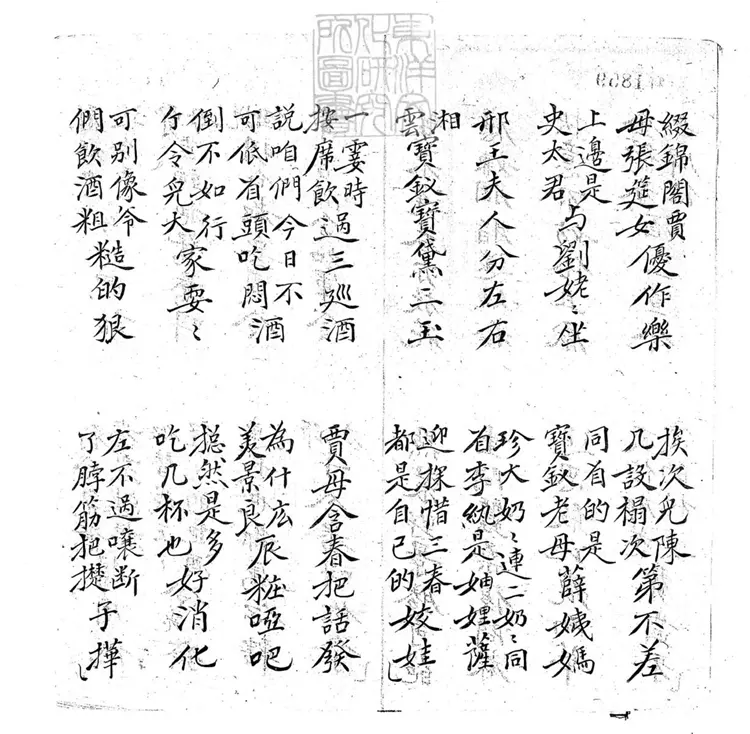 綴錦閣賈母張筵女優作樂
挨次兒陳几設榻次第不差
上邊是史太君与劉姥〻坐
同首的是寶釵老母薛姨媽
邢王夫人分左右
珍大奶〻連二奶〻同首李紈是妯娌薩
湘雲寶釵寶黛二玉
迎探惜三春都是自己的姣娃
一霎時按席飲過三廵酒
賈母含春把話發
說咱們今日不可低首頭吃悶酒
為什広美景良辰粧啞吧
倒不如行个令兒大家耍〻
總然是多吃几杯也好消化
可别像爷們飲酒粗糙的狠
左不過嚷断了脖筋把攅子摔